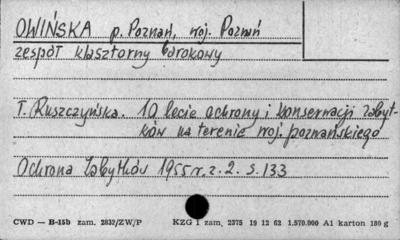 OWIŃSKA p. Poznań, woj. Poznań
zespół klasztorny barokowy
T. Ruszczyńska. 10 lecie ochrony i konserwacji zabyt-
ków na terenie woj. poznańskiego
Ochrona Zabytków 1955 r. z. 2. s. 133
CWD — B-15b zam. 2832/ZW/P KZG 1 zam. 2375 19 12 62 1.570.000 A1 karton 180 g